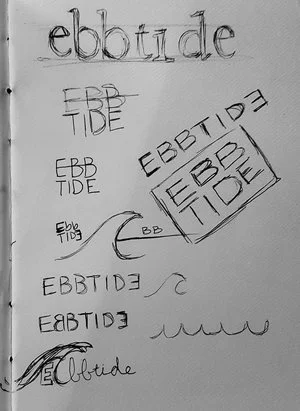 ebbtide
EBB
TIDE
EBBTIDƎ
EBB
TIDE
EBB
TIDE
Ebb
TIDƎ
BB
EBBTIDƎ
EBBTIDƎ
Ebbtide